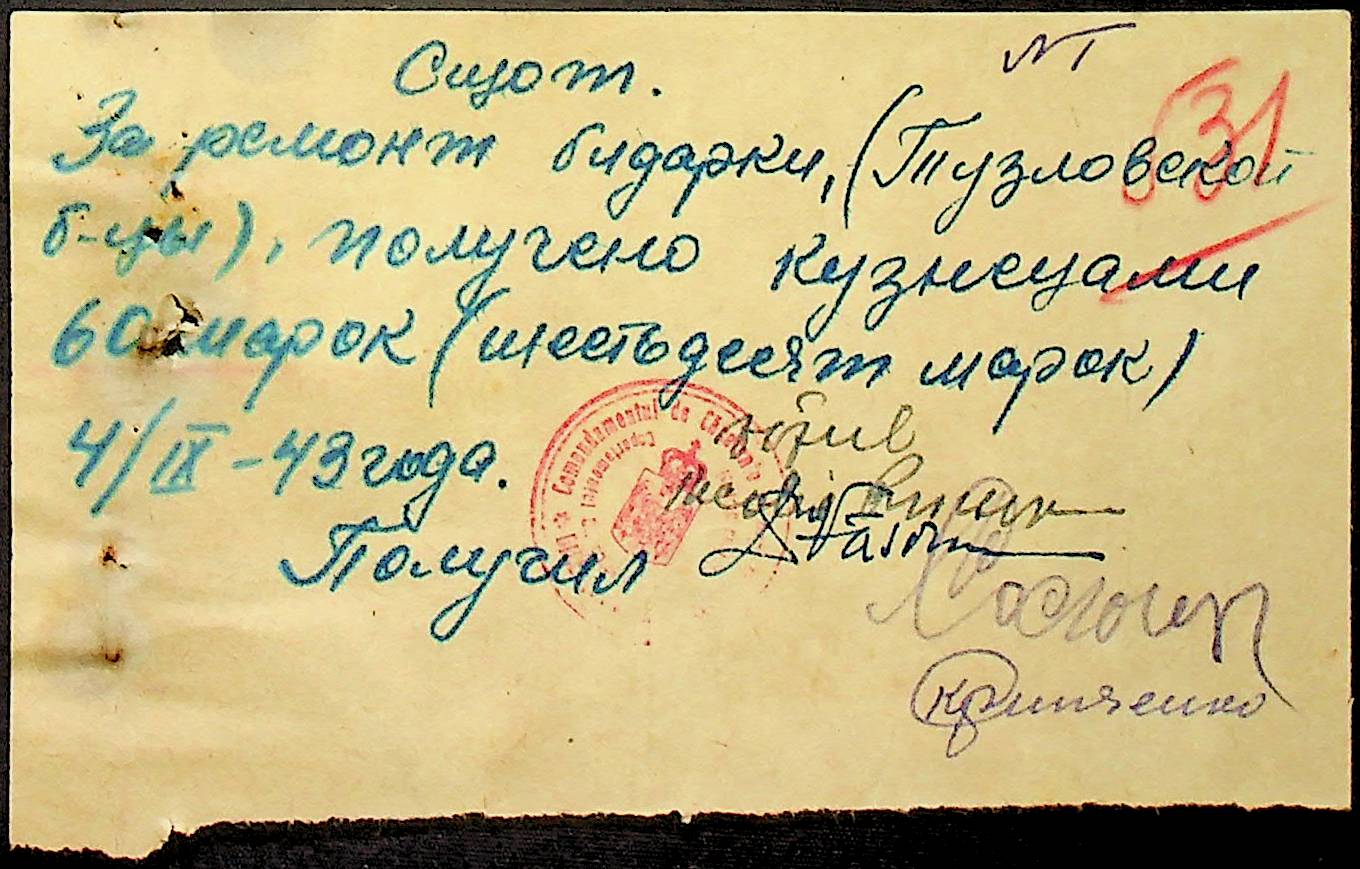 Сщот.
N 1
31
За ремонт бидарки, (Тузловской
б-цы), получено кузнецами
60 марок (шестьдесят марок)
4/IX - 43 года.
Получил
Comandamentul de
Кринченко